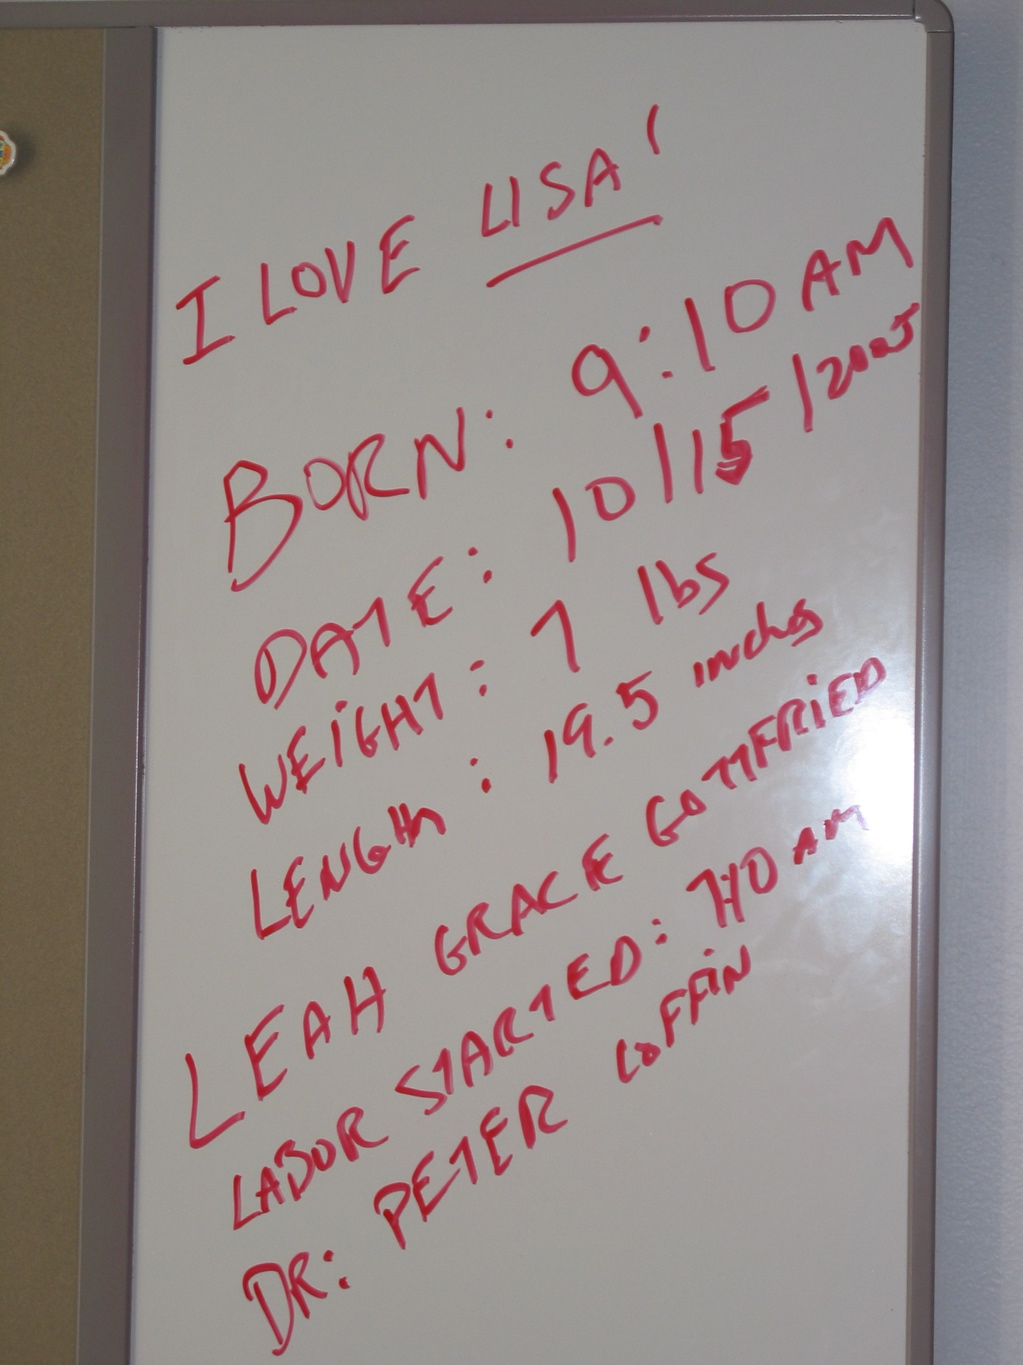 I LOVE LISA!
BORN: 9:10 AM
DATE: 10/15/2005
WEIGHT: 7 lbs
LENGth: 19.5 inches
LEAH GRACE GOTTFRIED
LABOR STARTED: 740 AM
DR: PETER COFFIN